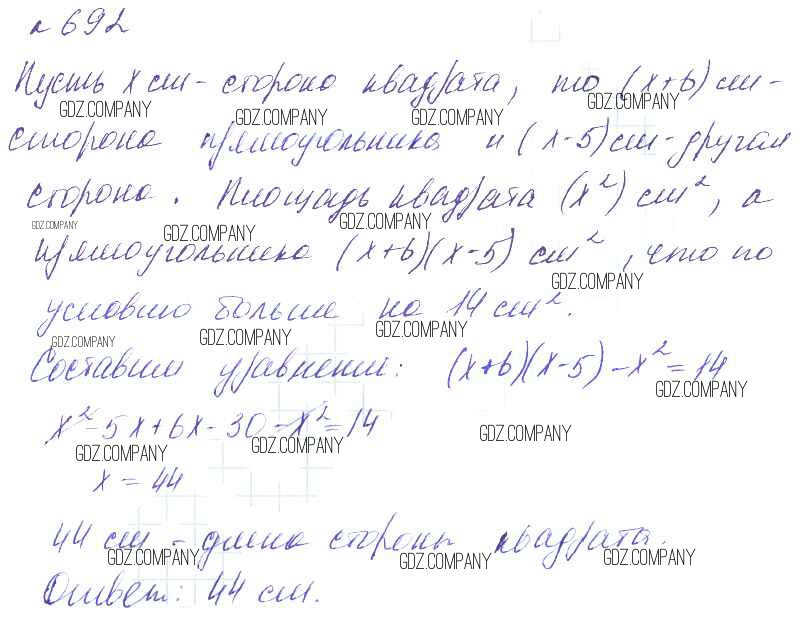 № 692
Пусть x см - сторона квадрата, то (x+6) см -
GDZ.COMPANY GDZ.COMPANY GDZ.COMPANY GDZ.COMPANY
сторона прямоугольника и (x-5) см - другая
сторона. Площадь квадрата (x²) см², а
GDZ.COMPANY GDZ.COMPANY GDZ.COMPANY
прямоугольника (x+6)(x-5) см², что по
GDZ.COMPANY
условию больше на 14 см².
GDZ.COMPANY GDZ.COMPANY GDZ.COMPANY
Составим уравнение: (x+6)(x-5) - x² = 14
GDZ.COMPANY
x² - 5x + 6x - 30 - x² = 14
GDZ.COMPANY GDZ.COMPANY GDZ.COMPANY
x = 44
44 см - длина стороны квадрата.
GDZ.COMPANY GDZ.COMPANY GDZ.COMPANY
Ответ: 44 см.